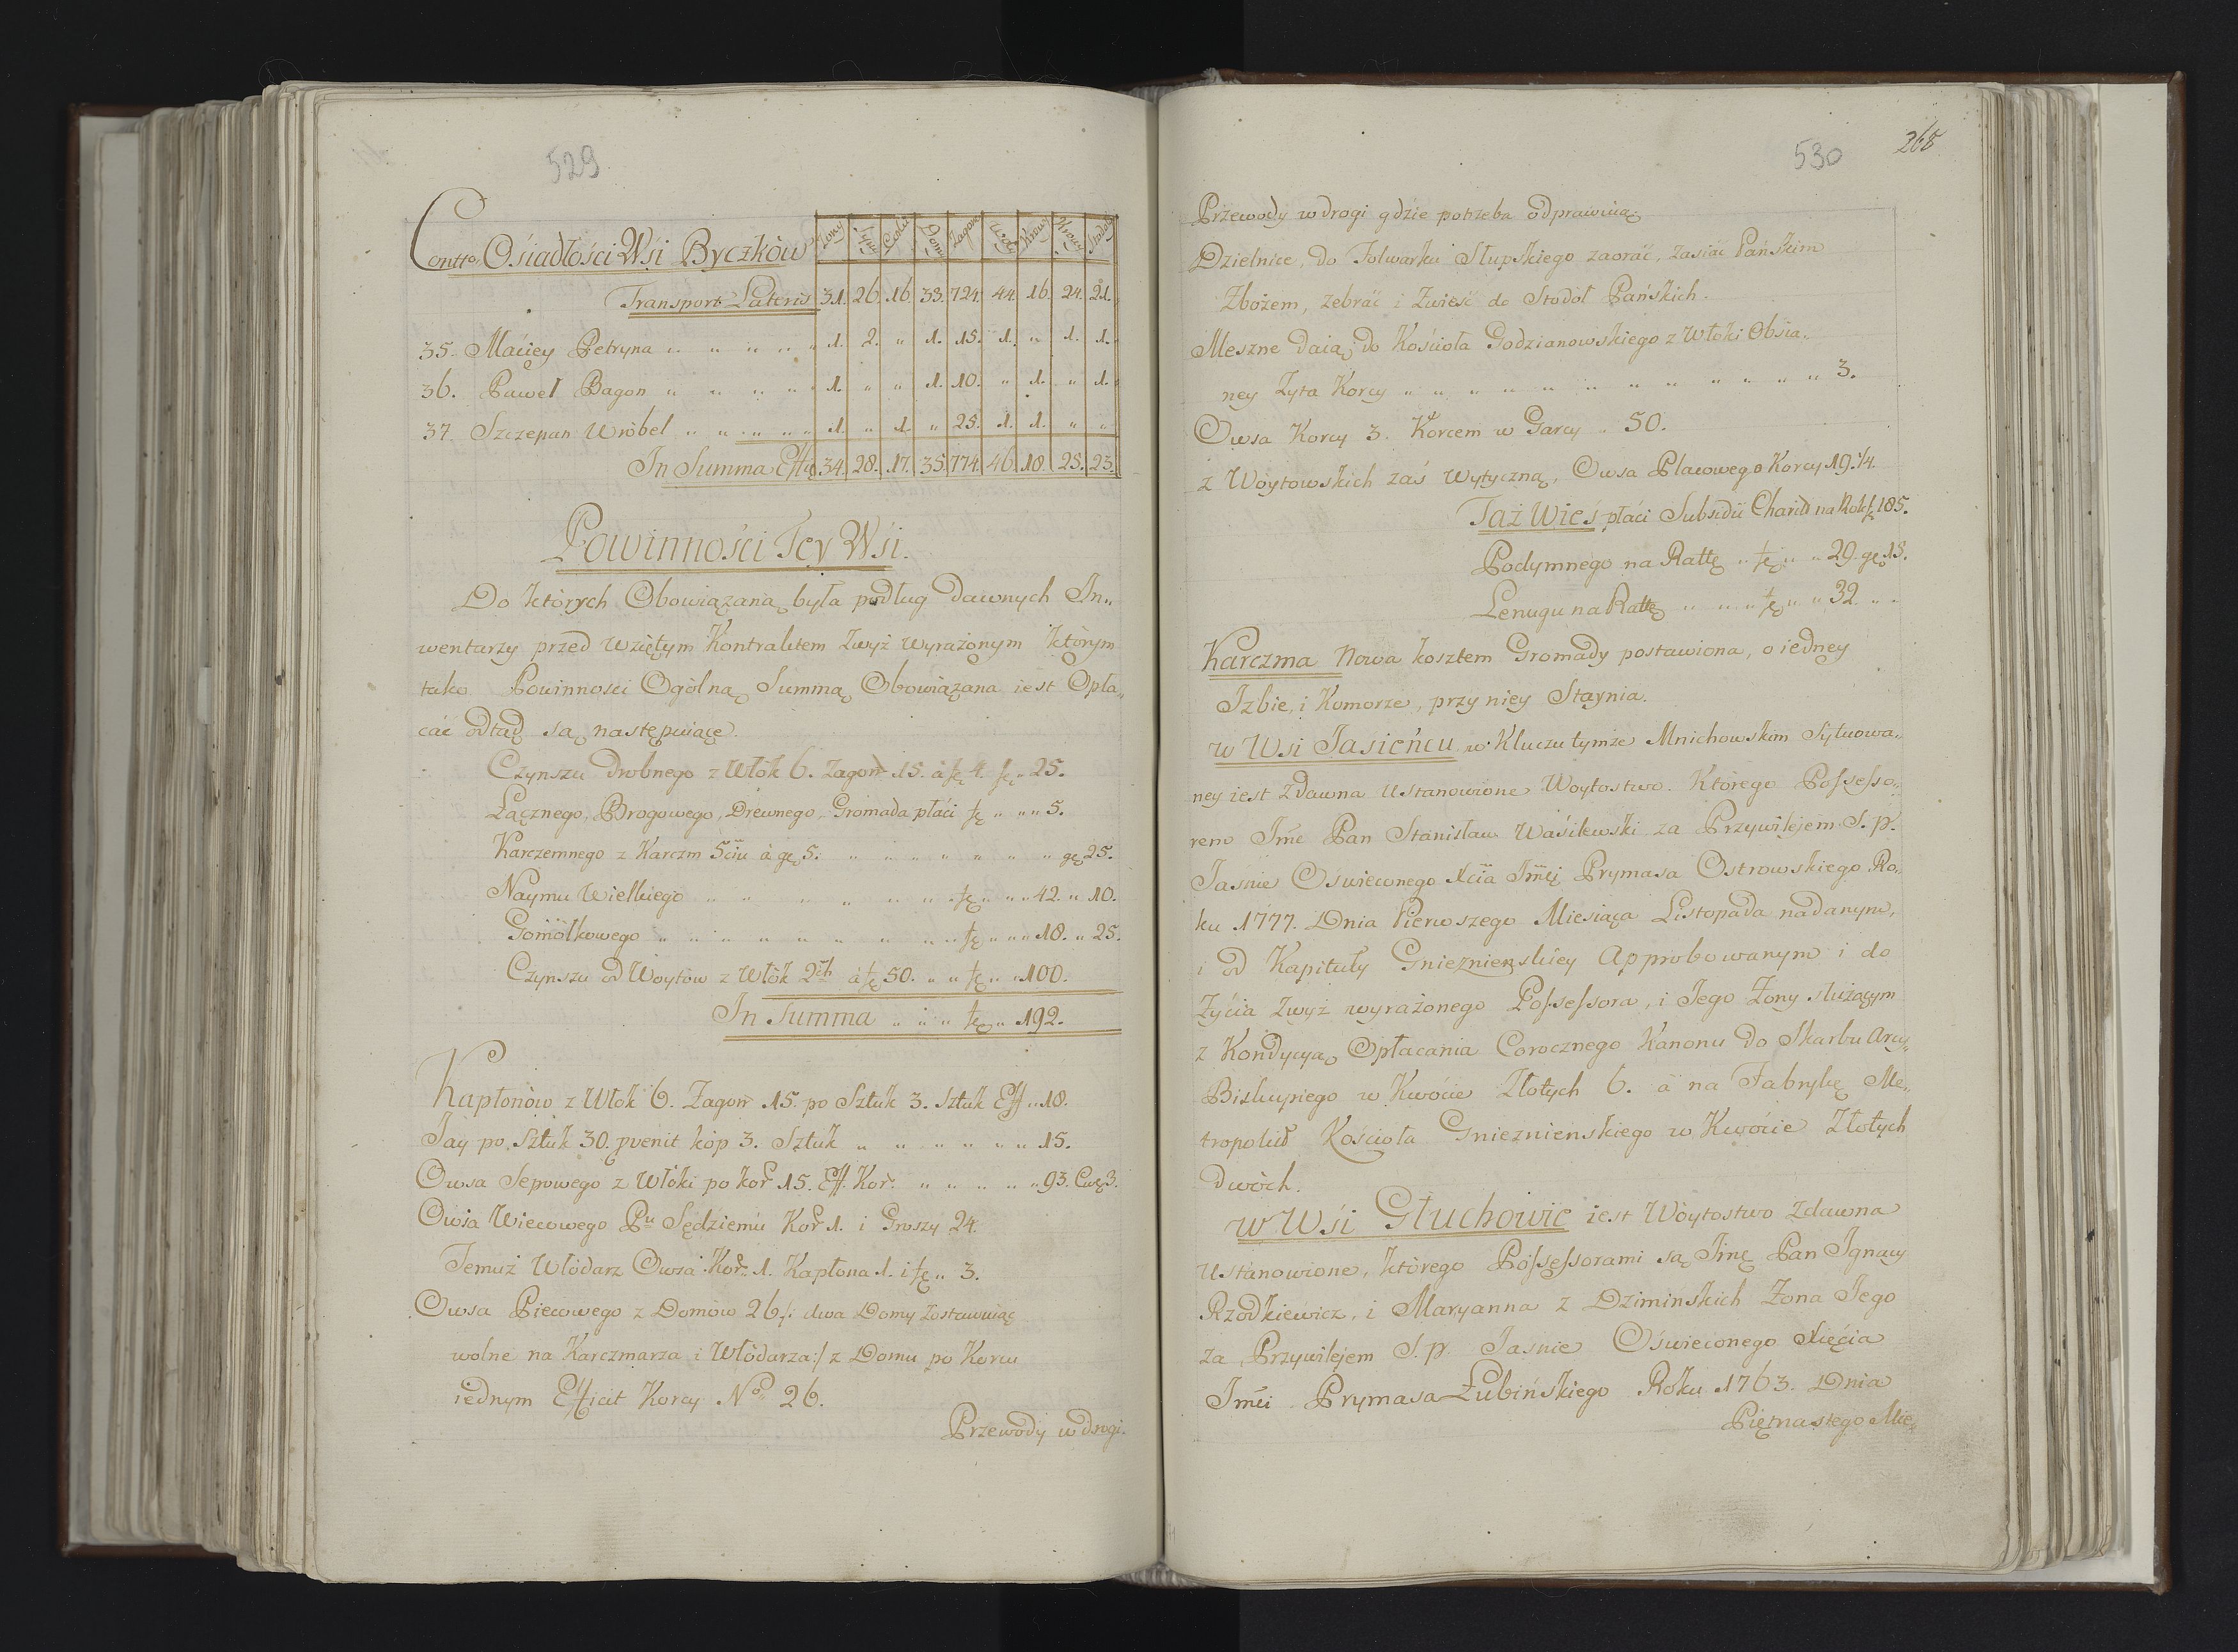 529
Contta. Osiadłości Wsi Byczków Żony Synj Córki Domy Zagony Woły Krowy Konie Stodoły
Transport Lateris 31. 26. 16. 33. 724. 44. 16. 24. 21.
35. Maciey Petryna „ „ „ „ „ 1. 2. „ 1. 15. 1. „ 1. 1.
36. Paweł Bagon „ „ „ „ 1. „ „ 1. 10. „ 1. „ 1.
37. Szczepan Wróbel „ „ „ „ „ 1. „ 1. „ 25. 1. 1. „ „
In Summa 34. 28. 17. 35. 774. 46. 18. 25. 23.
Powinności Tey Wsi.
Do których Obowiązana była podług dawnych In„
wentarzy przed wziętym Kontraktem Zwyż wyrażonym którym
tako Powinności Ogólną Summą Obowiązana iest Opła„
cać odtąd są następuiące.
Czynszu drobnego z Włók 6. Zagon 15. à fł 4. fł „ 25.
Łącznego, Brogowego, Drewnego, Gromada płaći fł „ „ „ 5.
Karczemnego z Karczm 5ciu à gę 5. „ „ „ „ „ „ „ gę 25.
Naymu Wielkiego „ „ „ „ „ „ fł „ „ „ 42. „ 10.
Gomółkowego „ „ „ „ „ „ „ „ „ fł „ „ „ 18. „ 25.
Czynszu od Woytów z Włók 2ch à fł 50. „ „ fł „ „ 100.
In Summa „ „ „ fł „ 192.
Kapłonów z Włok 6. Zagon 15. po Sztuk 3. Sztuk Eff „ 18.
Jay po Sztuk 30. pvenit kóp 3. Sztuk „ „ „ „ „ „ 15.
Owsa Sepowego z Włóki po kor 15. Eff. Kor. „ „ „ „ „ „ 93. Cwę 3.
Owsa Wiecowego Pu Sędziemu Kor 1. i Groszy 24.
Temuż Włódarz Owsa Kor. 1. Kapłona 1. i fł „ 3.
Owsa Piecowego z Domów 26 /: dwa Domy Zostawuiąc
wolne na Karczmarza i Włódarza :/ z Domu po Korcu
iednym Efficit Korcy No 26.
Przewody w drogi.
530 268
Przewody w drogi gdzie potrzeba odprawuią.
Dzielnice, do Folwarku Słupskiego zaorać, zasiać Pańskim
Zbożem, zebrać i Zwieść do Stodoł Pańskich.
Meszne daią do Kościoła Godzianowskiego z Włóki Obsia„
ney Żyta Korcy „ „ „ „ „ „ „ „ „ „ „ 3.
Owsa Korcy 3. Korcem w Garcy „ 50.
z Woytowskich zaś Wytyczną, Owsa Placowego Korcy 19. 1/4.
Taż Wieś płaci Subsidii Charitt na Rok fł 185.
Podymnego na Rattę „ fł „ „ 29. gę 15.
Lenugu na Rattę „ „ „ fł „ „ 32. „ „
Karczma Nowa kosztem Gromady postawiona, o iedney
Izbie, i Komorze, przy niey Staynia.
w Wsi Jasieńcu w Kluczu tymże Mnichowskim Sytuowa„
ney iest Zdawna Ustanowione Woytostwo. Którego Possesso„
rem Jmć Pan Stanisław Wasilewski za Przywilejem S. p.
Jasnie Oświeconego Xcia Jmći Prymasa Ostrowskiego Ro„
ku 1777. Dnia Pierwszego Miesiąca Listopada nadanym,
i od Kapituły Gnieznienskiey Approbowanym i do
Życia Zwyż wyrażonego Possessora, i Jego Żony służącym
z Kondycyą Opłacania Corocznego Kanonu do Skarbu Arcy„
Biskupiego w Kwócie Złotych 6. à na Fabrykę Me„
tropolii Kościoła Gnieznienskiego w Kwócie Złotych
dwóch.
w Wsi Głuchowie iest Wóytostwo Zdawna
Ustanowione, którego Possessorami są Jmć Pan Ignacy
Rzodkiewicz, i Maryanna z Dziminskich Żona Jego
Za Przywilejem S. p. Jasnie Oświeconego Xięcia
Jmći Prymasa Łubińskiego Roku 1763. Dnia
Piętnastego Mie„